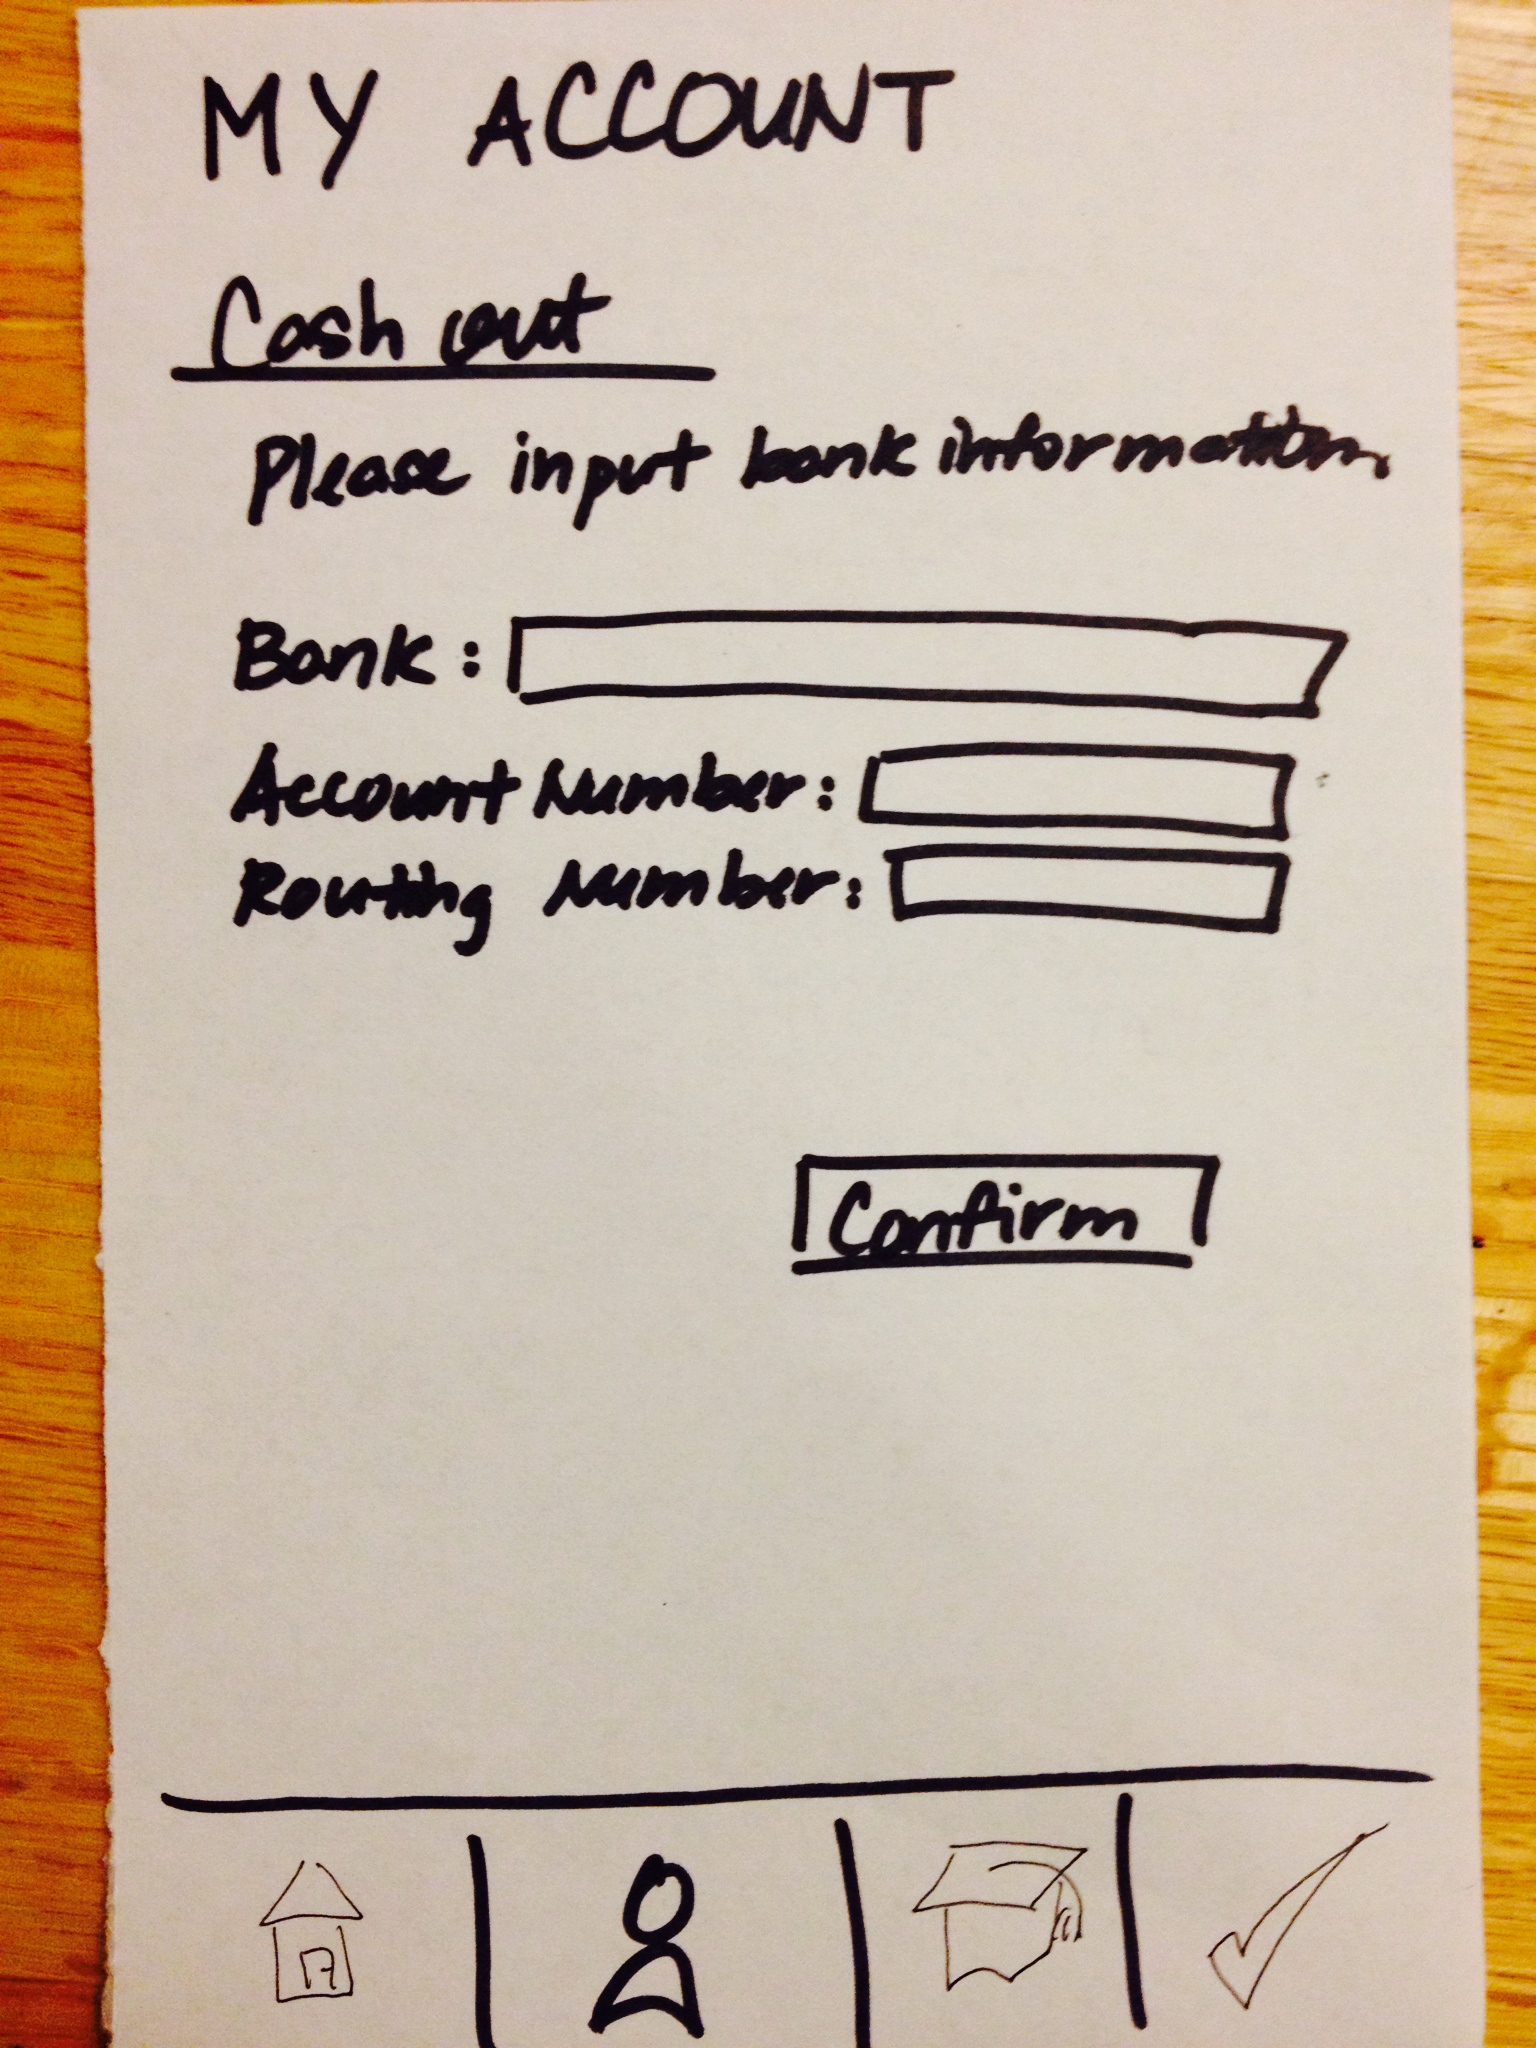 MY ACCOUNT
Cash out
Please input bank information
Bank:
Account Number:
Routing Number:
Confirm